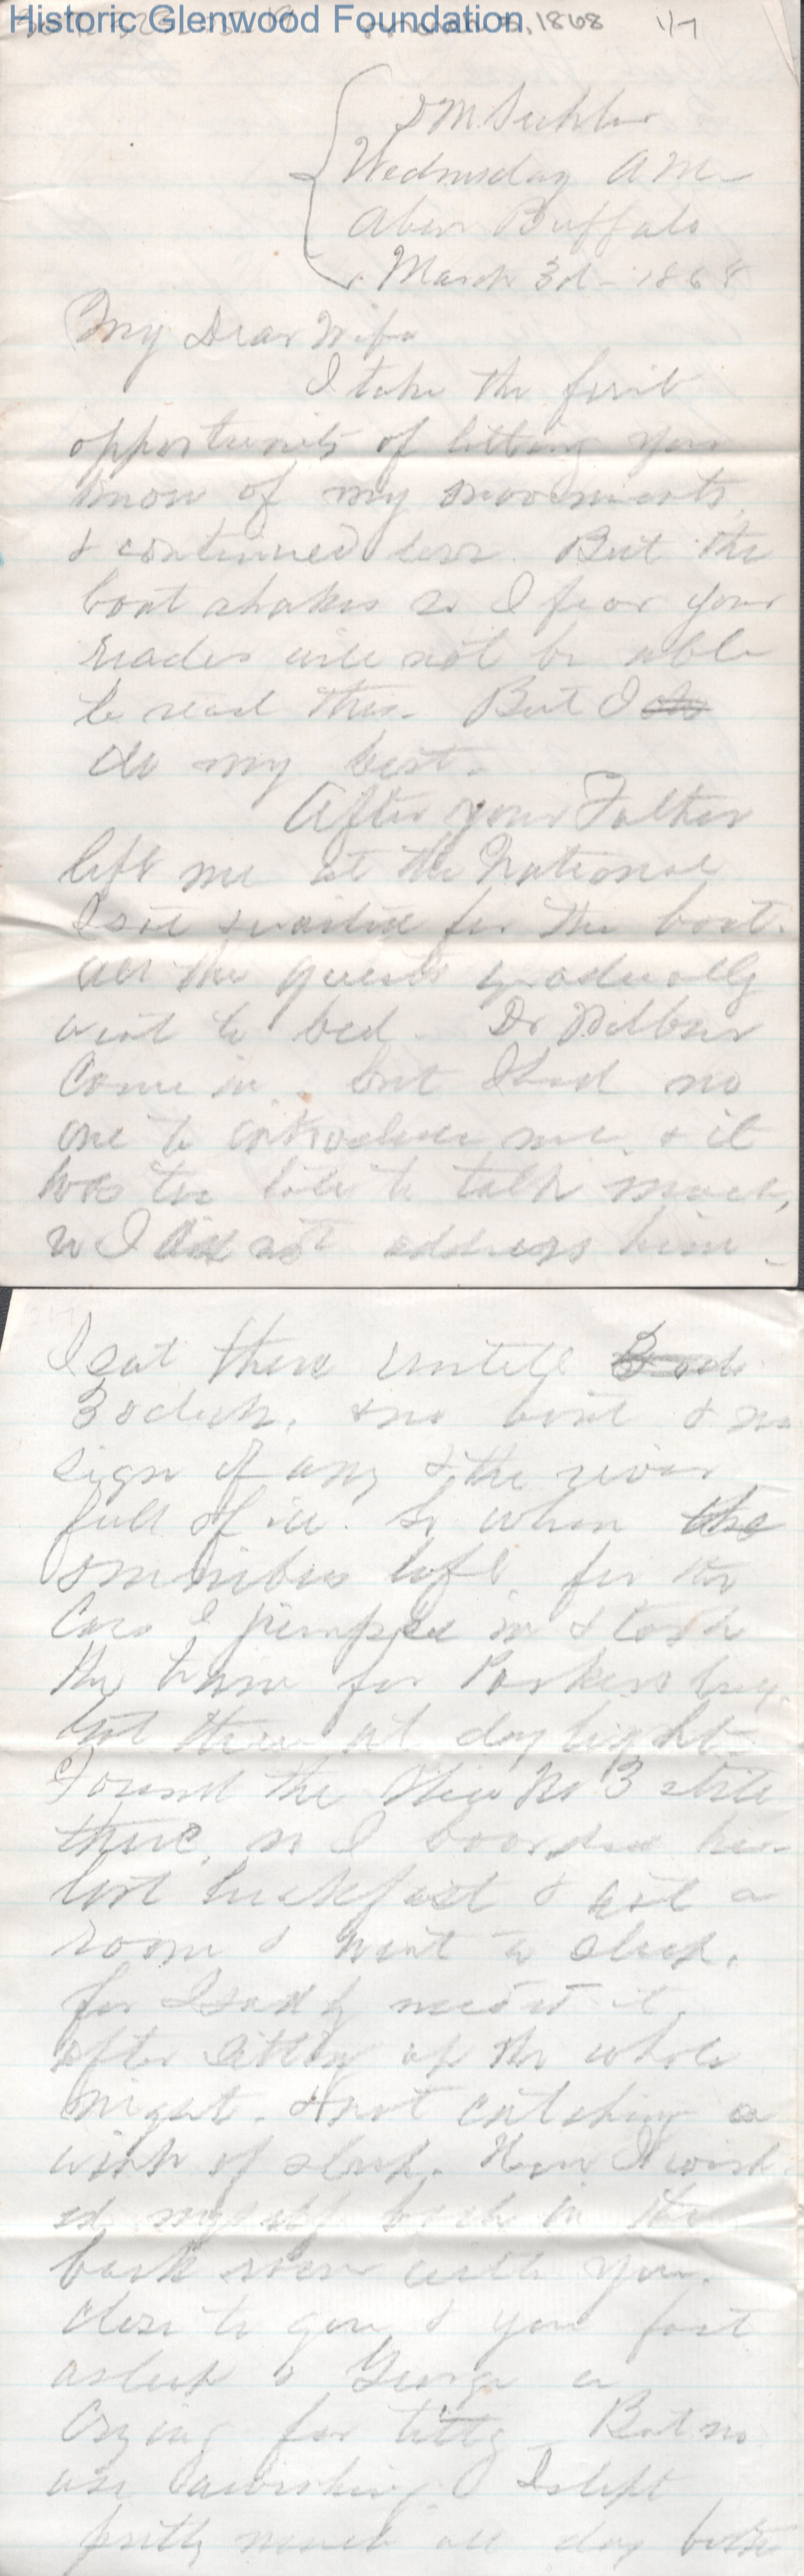 Historic Glenwood Foundation
1868 1/7
Wednesday AM
Above Buffalo
March 3d - 1868
My Dear Wife
I take the first
opportunity of letting you
know of my movements
& continued love. But the
boat shakes so I fear your
reader will not be able
to read this. But I
do my best.
After your Father
left me at the National
I sat & waited for the boat.
all the guests gradually
went to bed. Dr Wilbur
Came in, but I had no
one to introduce me, & it
was too late to talk much,
so I did not address him -
I sat there untill
3 oclock, & no boat & no
sign of any & the river
full of ice. So when the
omnibus left for the
Cars I jumped in & took
the train for Parkersburg.
Got there at daylight
Found the No 3 still
there, so I boarded her
Got brekfast & got a
room & went to sleep,
for I sadly needed it,
after sitting up the whole
night, & not catching a
wink of sleep. How I wish
ed myself back in the
back room with you.
close to you & you fast
asleep & George a
Crying for titty But no
use awishing I slept
pretty much all day both